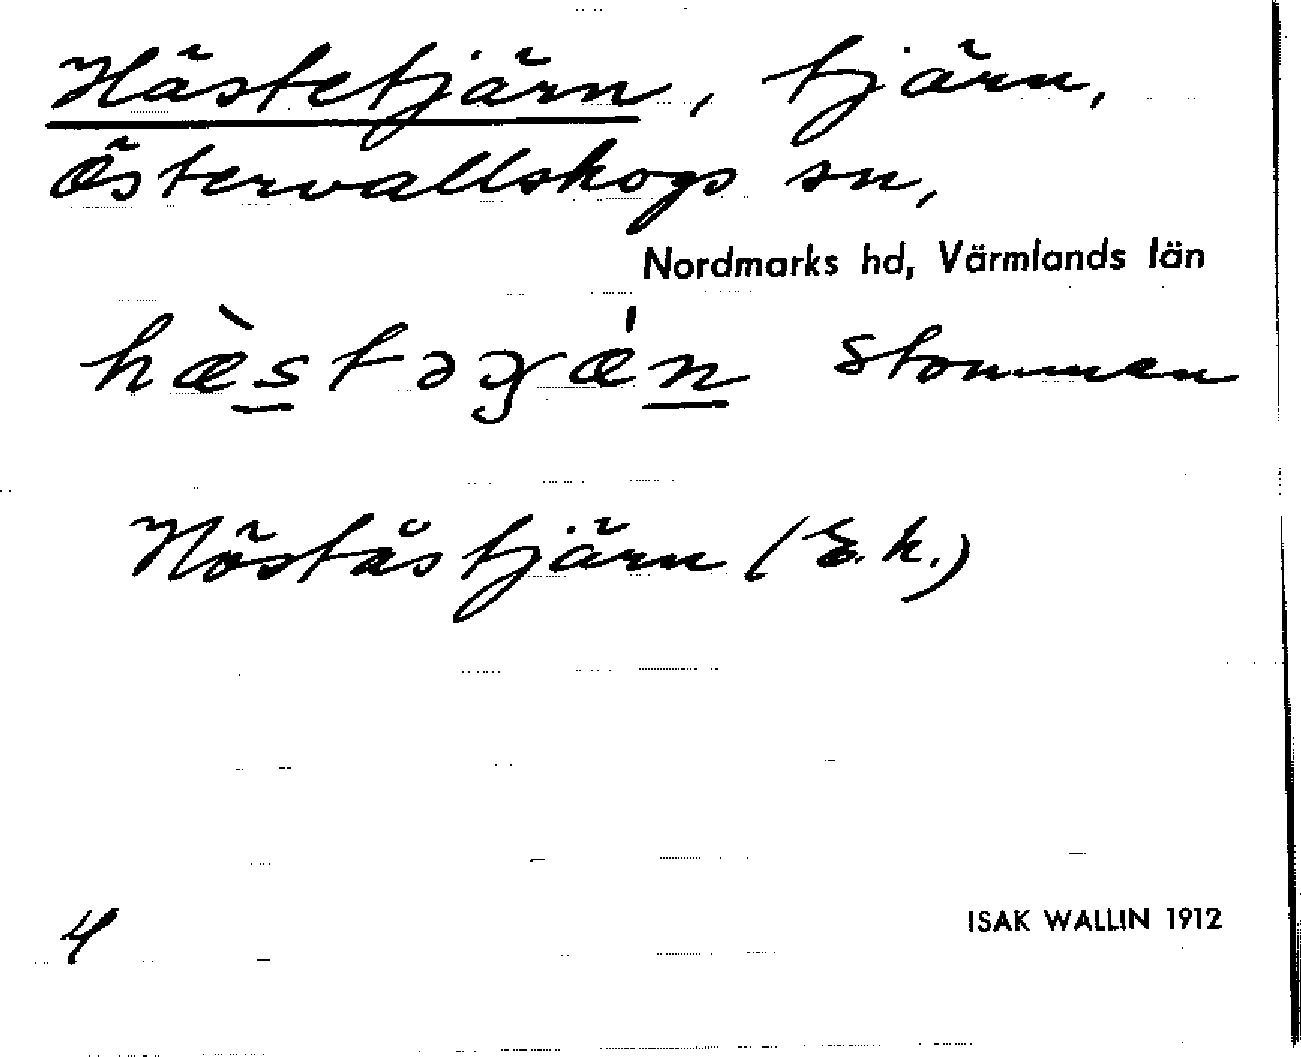 Hästetjärn, tjärn,
Östervallskogs sn,
Nordmarks hd, Värmlands län
Stommen
Höståstjärn (E.k.)
4
ISAK WALLIN 1912